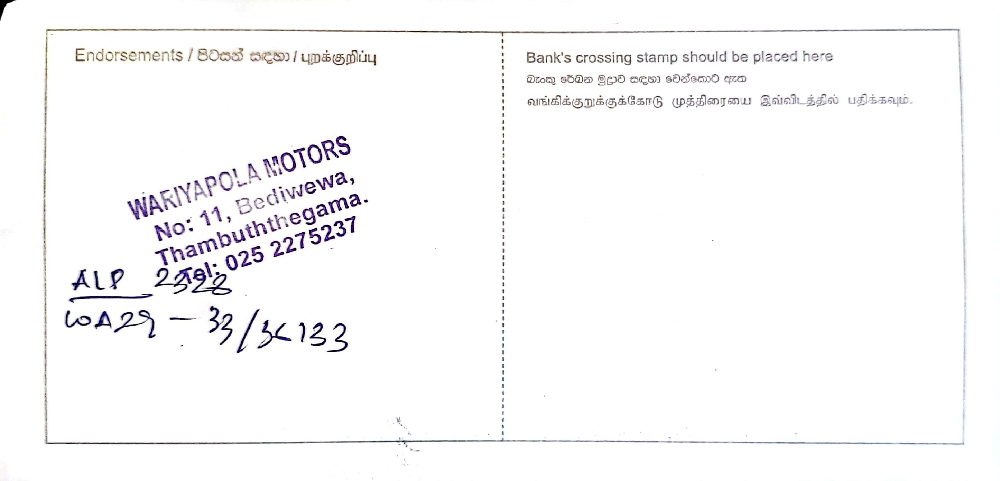 Endorsements / පිටසන් සඳහා / புறக்குறிப்பு
WARIYAPOLA MOTORS
No: 11, Bediwewa,
Thambuththegama.
Tel: 025 2275237
ALP 2328
WA29 - 33/34133
Bank's crossing stamp should be placed here
බැංකු රේඛන මුද්‍රාව සඳහා වෙන්කොට ඇත
வங்கிக்குறுக்குக்கோடு முத்திரையை இவ்விடத்தில் பதிக்கவும்.